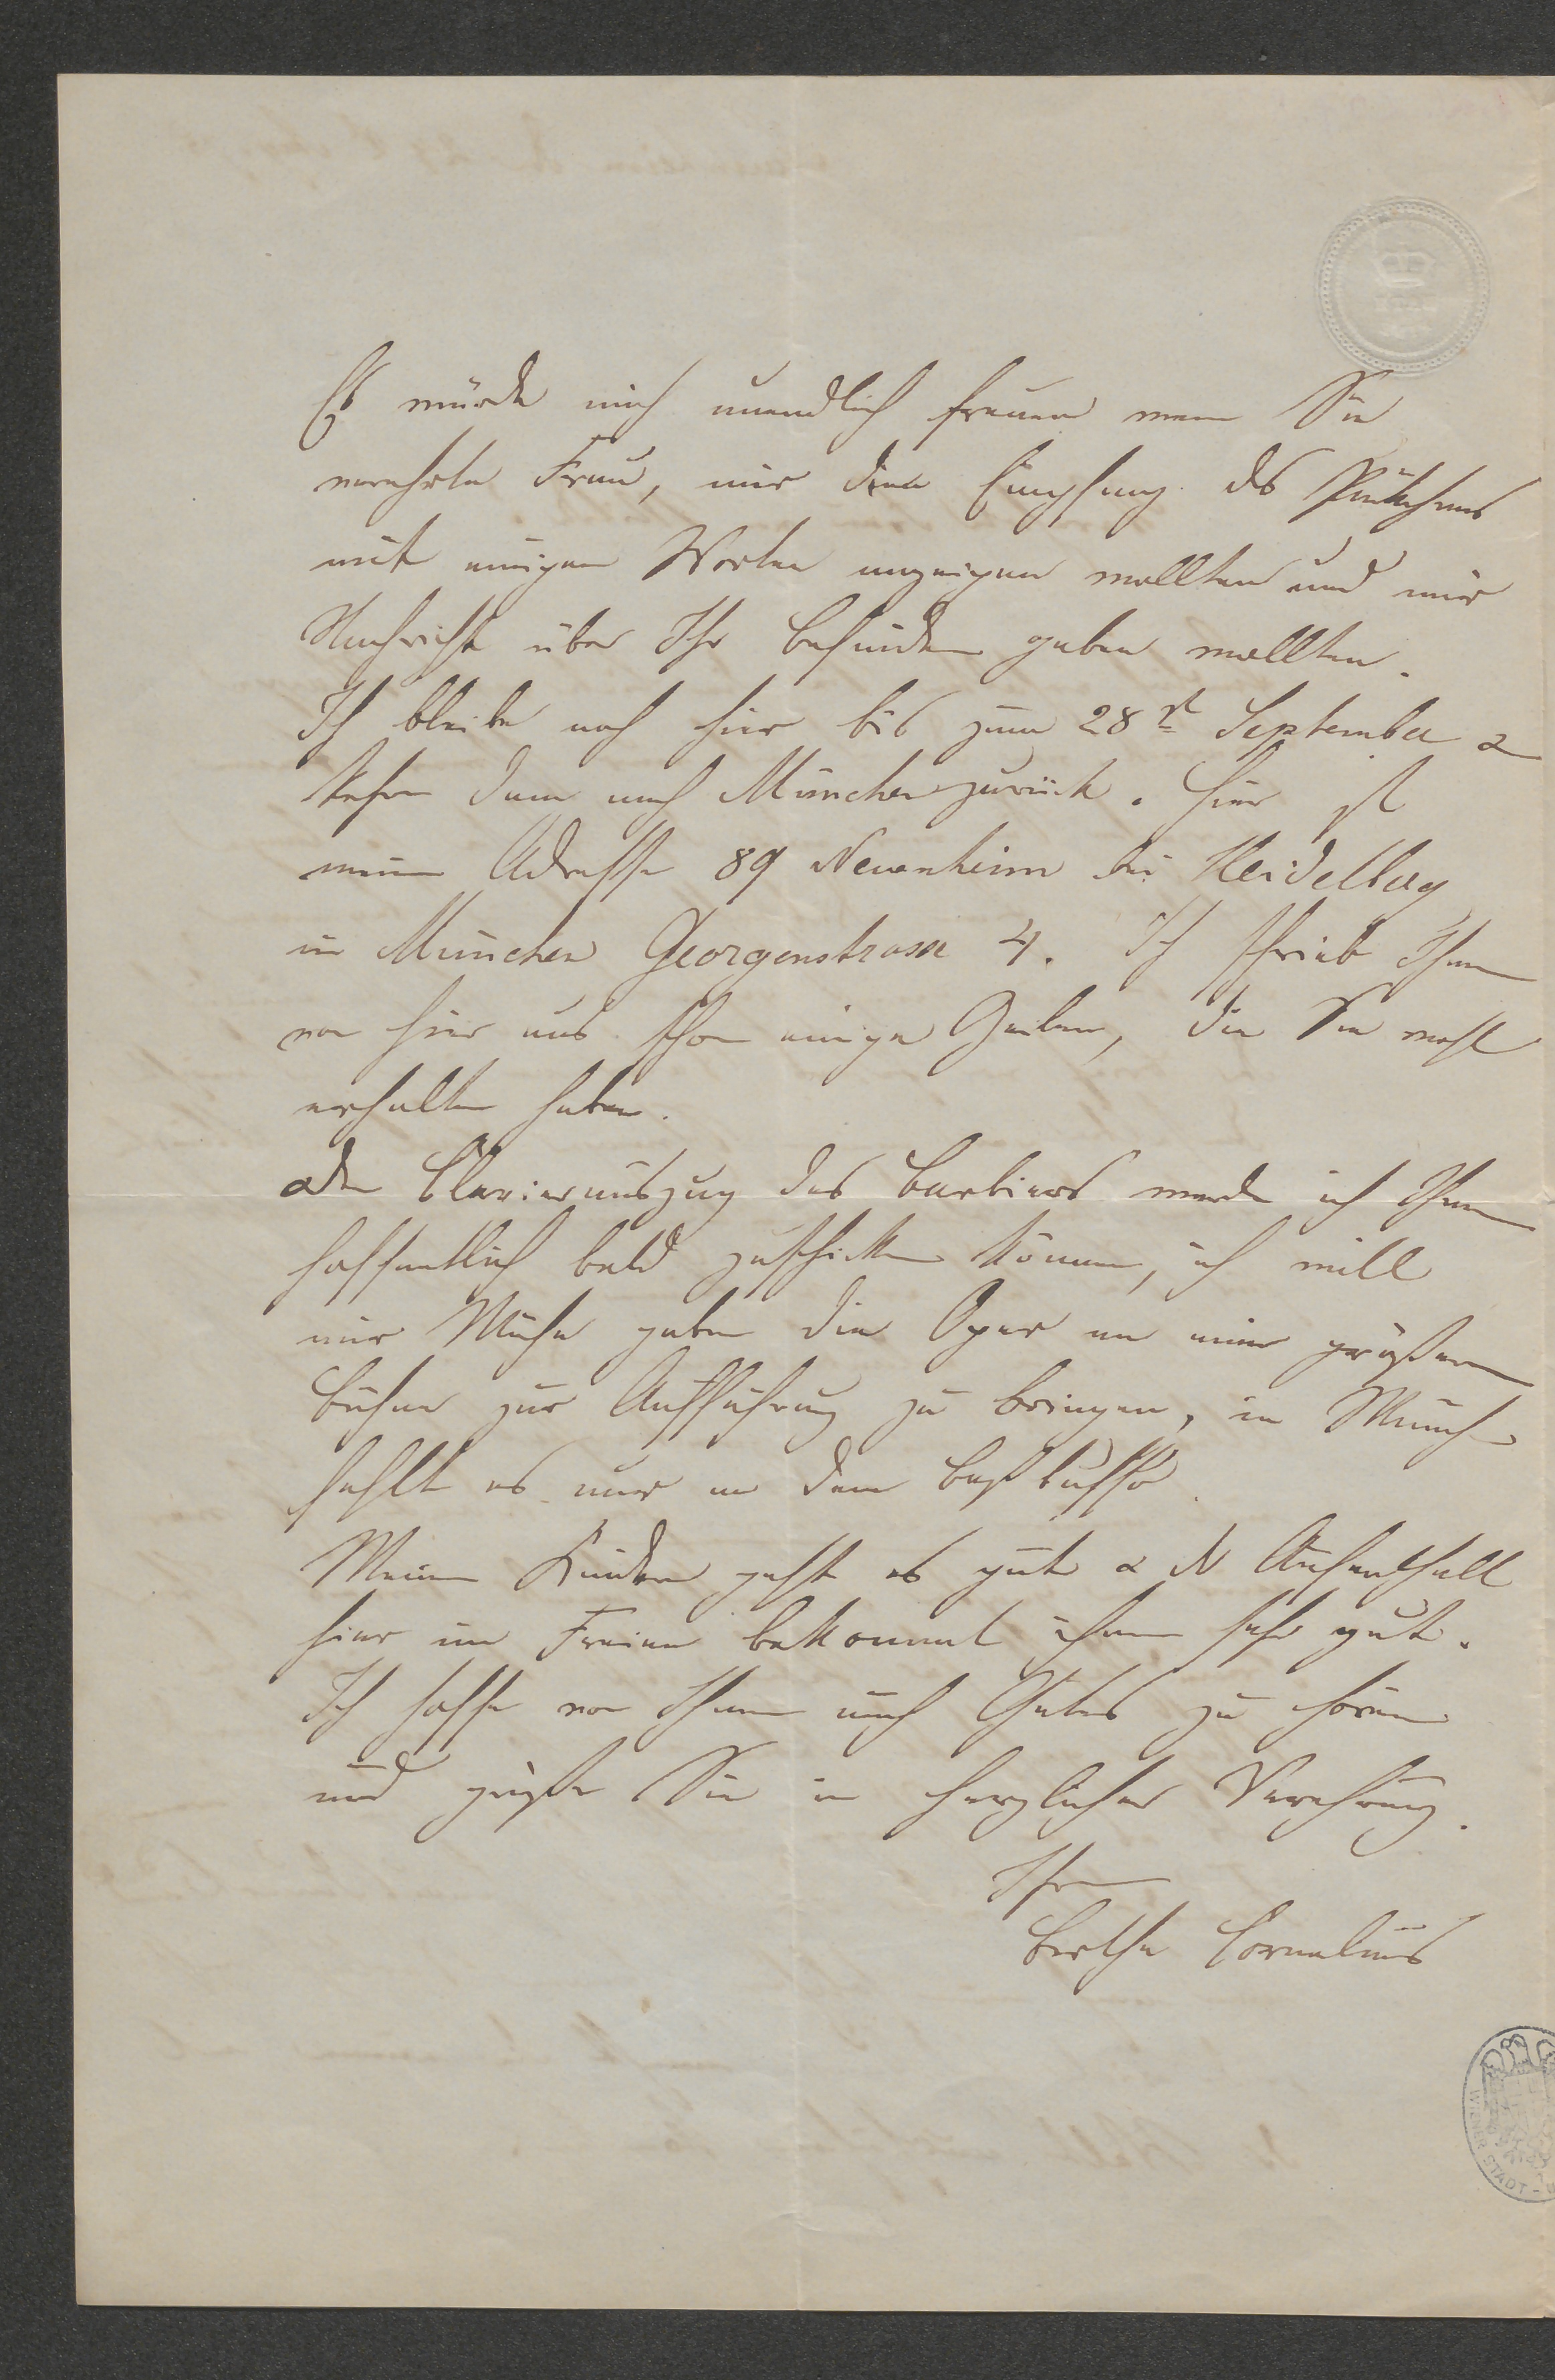 Es würde mich unendlich freuen wenn Sie
verehrte Frau, mir den Empfang des Päckchens
mit einigen Worten anzeigen wollten und mir
Nachricht über Ihr Befinden geben wollten.
Ich bleibe noch hier bis zum 28st September &
kehre dann nach München zurück. Hier ist
meine Adresse 89 Neuenheim bei Heidelberg
in München Georgenstrasse 4. Ich schrieb Ihnen
von hier aus schon einige Zeilen, die Sie wohl
erhalten haben.
Den Clavierauszug des Barbiers werde ich Ihnen
hoffentlich bald zuschicken können, ich will
mir Mühe geben die Oper an einer größern
Bühne zur Aufführung zu bringen, in Münch
fehlt es nur an dem Baßbuffo.
Meinen Kindern geht es gut & der Aufenthalt
hier im Freien bekommt ihnen sehr gut.
Ich hoffe von Ihnen auch Gutes zu hören
und grüße Sie in herzlicher Verehrung.
Ihre
Bertha Cornelius
WIENER STADT-